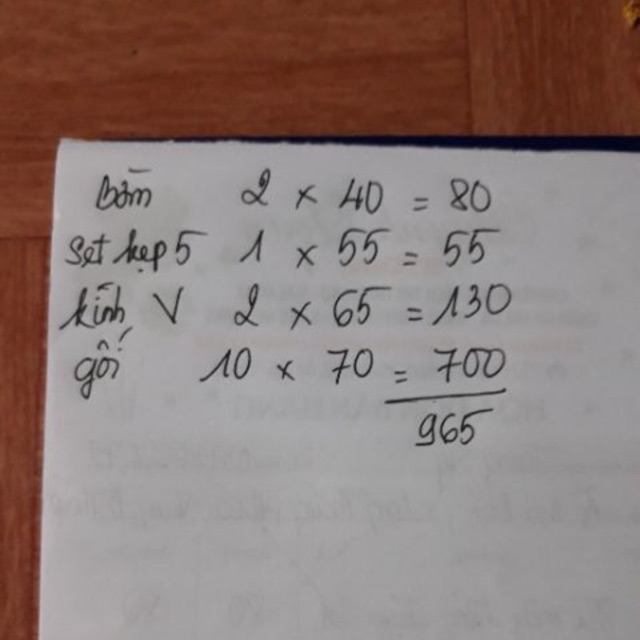 bờm 2 x 40 = 80
set kẹp 5 1 x 55 = 55
kính V 2 x 65 = 130
gối 10 x 70 = 700
965